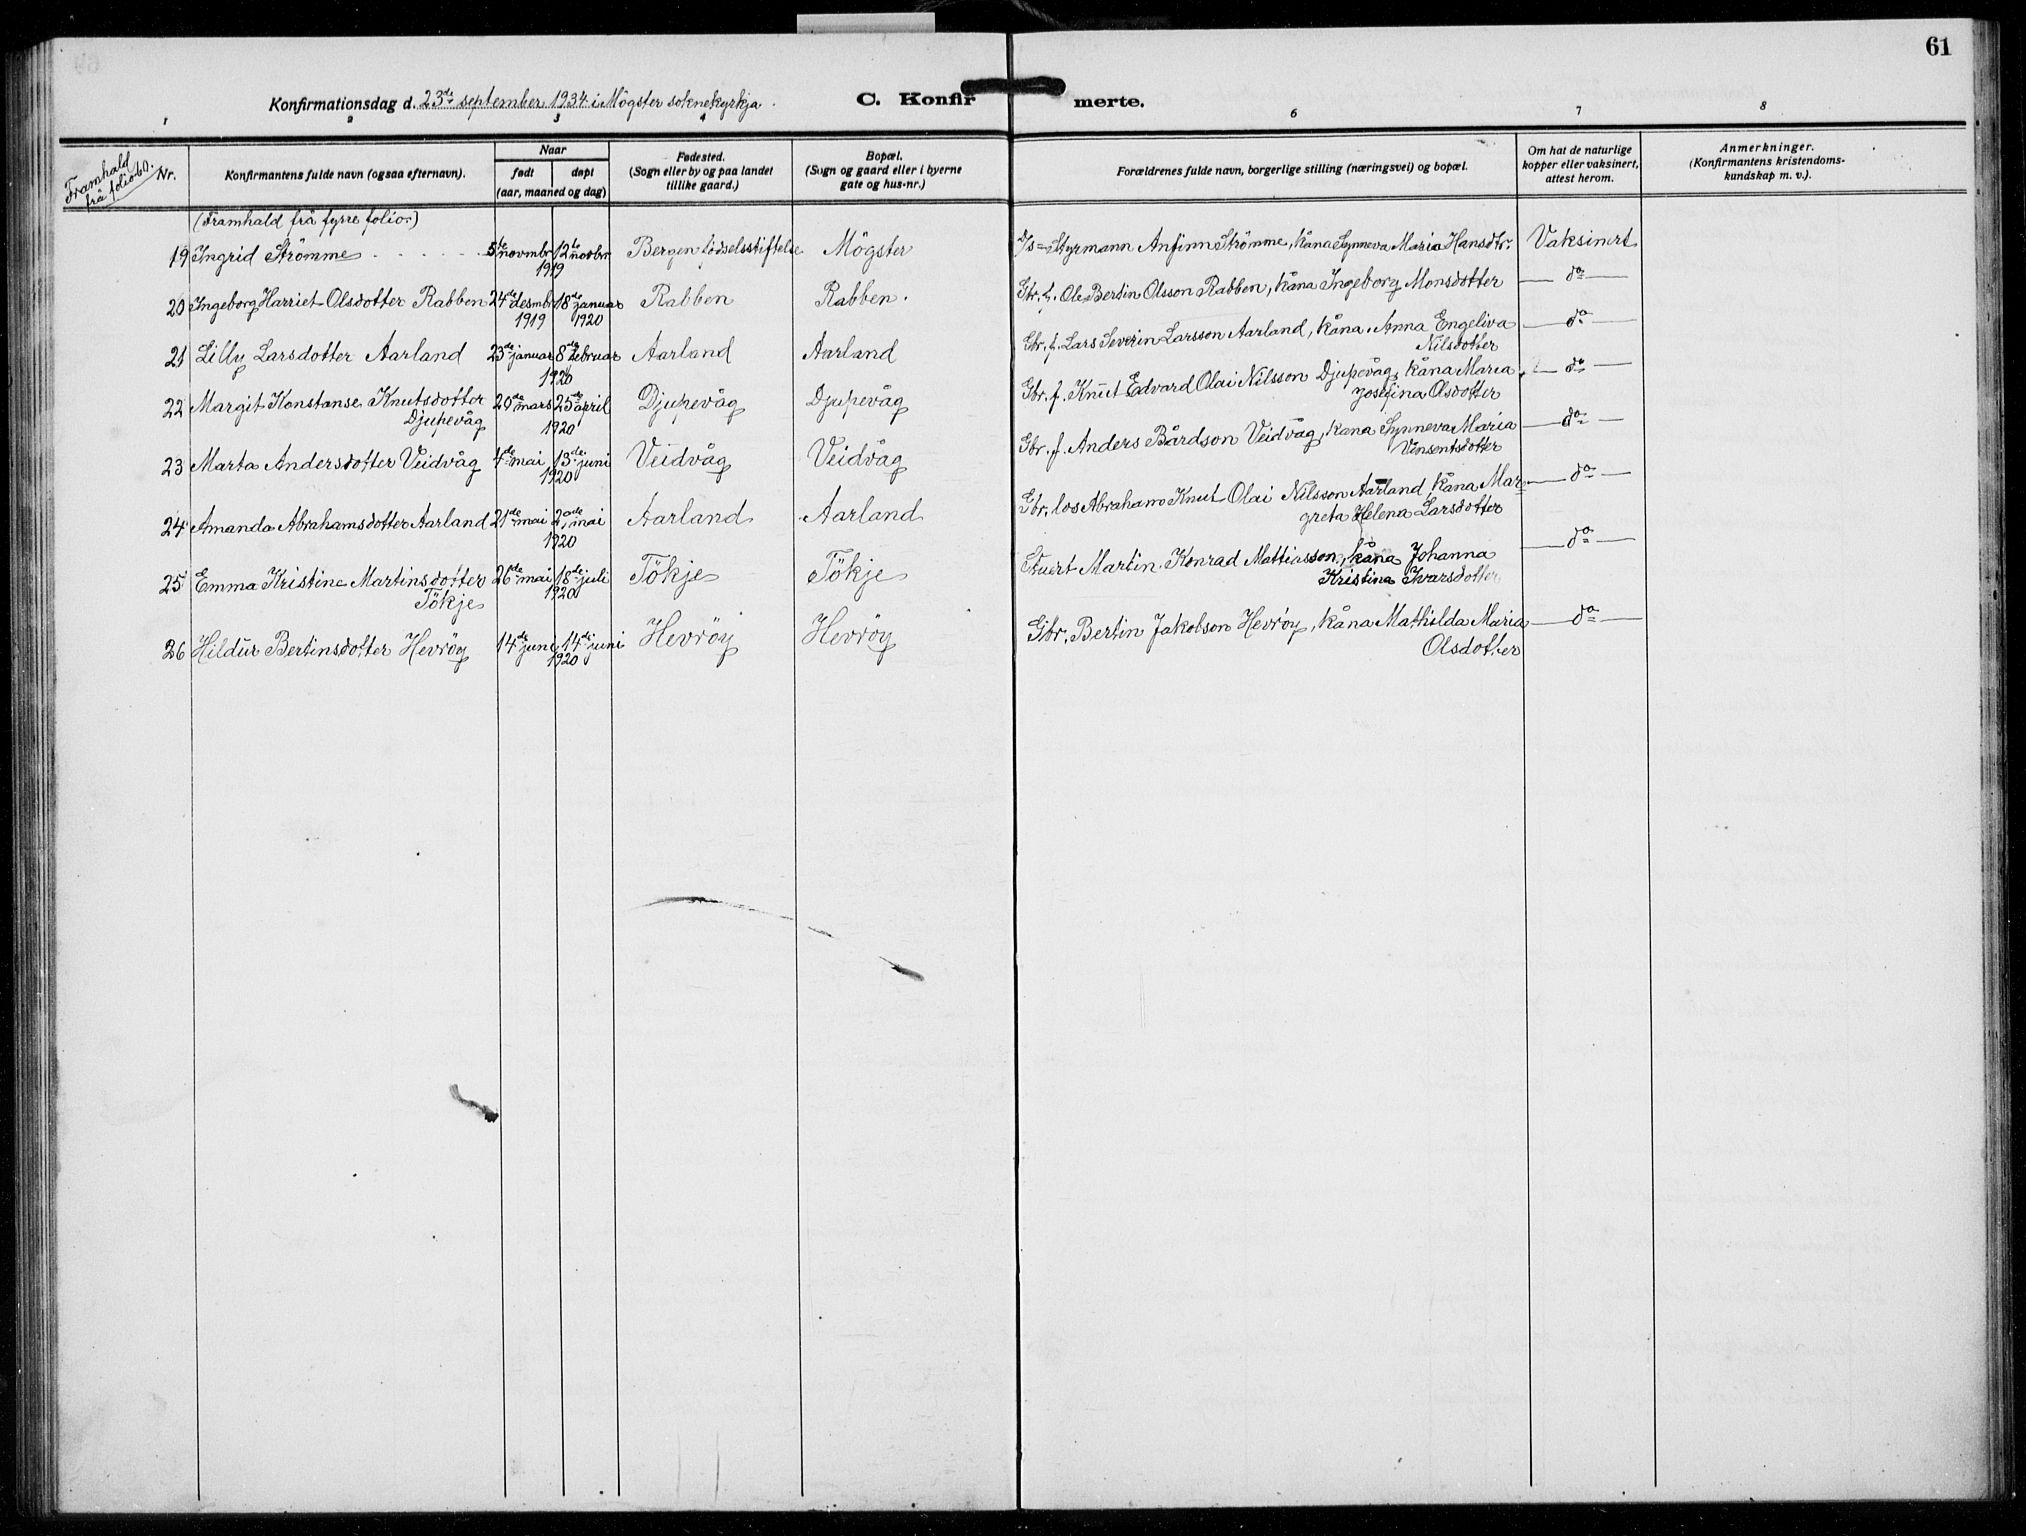 61
Konfirmationsdag d. 23de september 1934 i Mögster soknekyrkja.
C. Konfirmerte.
1 2 3 4 6 7 8
Framhald frå folio 60.
Nr.
Konfirmantens fulde navn (ogsaa efternavn).
Naar
født døpt
(aar, maaned og dag)
Fødested.
(Sogn eller by og paa landet
tillike gaard.)
Bopæl.
(Sogn og gaard eller i byerne
gate og hus-nr.)
Forældrenes fulde navn, borgerlige stilling (næringsvei) og bopæl.
Om hat de naturlige
kopper eller vaksinert,
attest herom.
Anmerkninger.
(Konfirmantens kristendoms-
kundskap m. v.).
(Framhald frå fyrre folio.)
19 Ingrid Strömme 5te novmbr 12te novbr Bergen fødselsstiftelse Mögster D/s=Styrmann Anfinn Strömme, kåna Synneva Maria Hansdtr. Vaksinert
1919
20 Ingeborg Harriet Olsdotter Rabben 24de desmbr 18de januar Rabben Rabben. Gbr. f. Ole Bertin Olsson Rabben, kåna Ingeborg Monsdotter — do —
1919 1920
21 Lilly Larsdotter Aarland 23de januar 8de februar Aarland Aarland Gbr. f. Lars Severin Larsson Aarland, kåna Anna Engeliva — do —
1920 Nilsdotter
22 Margit Konstanse Knutsdotter 20de mars 25de april Djupevåg Djupevåg Gbr. f. Knut Edvard Olai Nilsson Djupevåg, kåna Maria — do —
Djupevåg 1920 Josefina Olsdotter
23 Marta Andersdotter Veidvåg 4de mai 13de juni Veidvåg Veidvåg Gbr. f. Anders Bårdson Veidvåg, kåna Synneva Maria — do —
1920 Vinsentsdotter
24 Amanda Abrahamsdotter Aarland 21de mai mai Aarland Aarland Gbr. los Abraham Knut Olai Nilsson Aarland, kåna Mar= — do —
1920 greta Helena Larsdotter
25 Emma Kristine Martinsdotter 26de mai 18de juli Tökje Tökje Stuert Martin Konrad Mattiasson, kåna Johanna — do —
Tökje 1920 Kristina Ivarsdotter
26 Hildur Bertinsdotter Hevröy 14de juni 14de juni Hevröy Hevröy Gbr. Bertin Jakobson Hevröy, kåna Mathilda Maria — do —
1920 Olsdotter